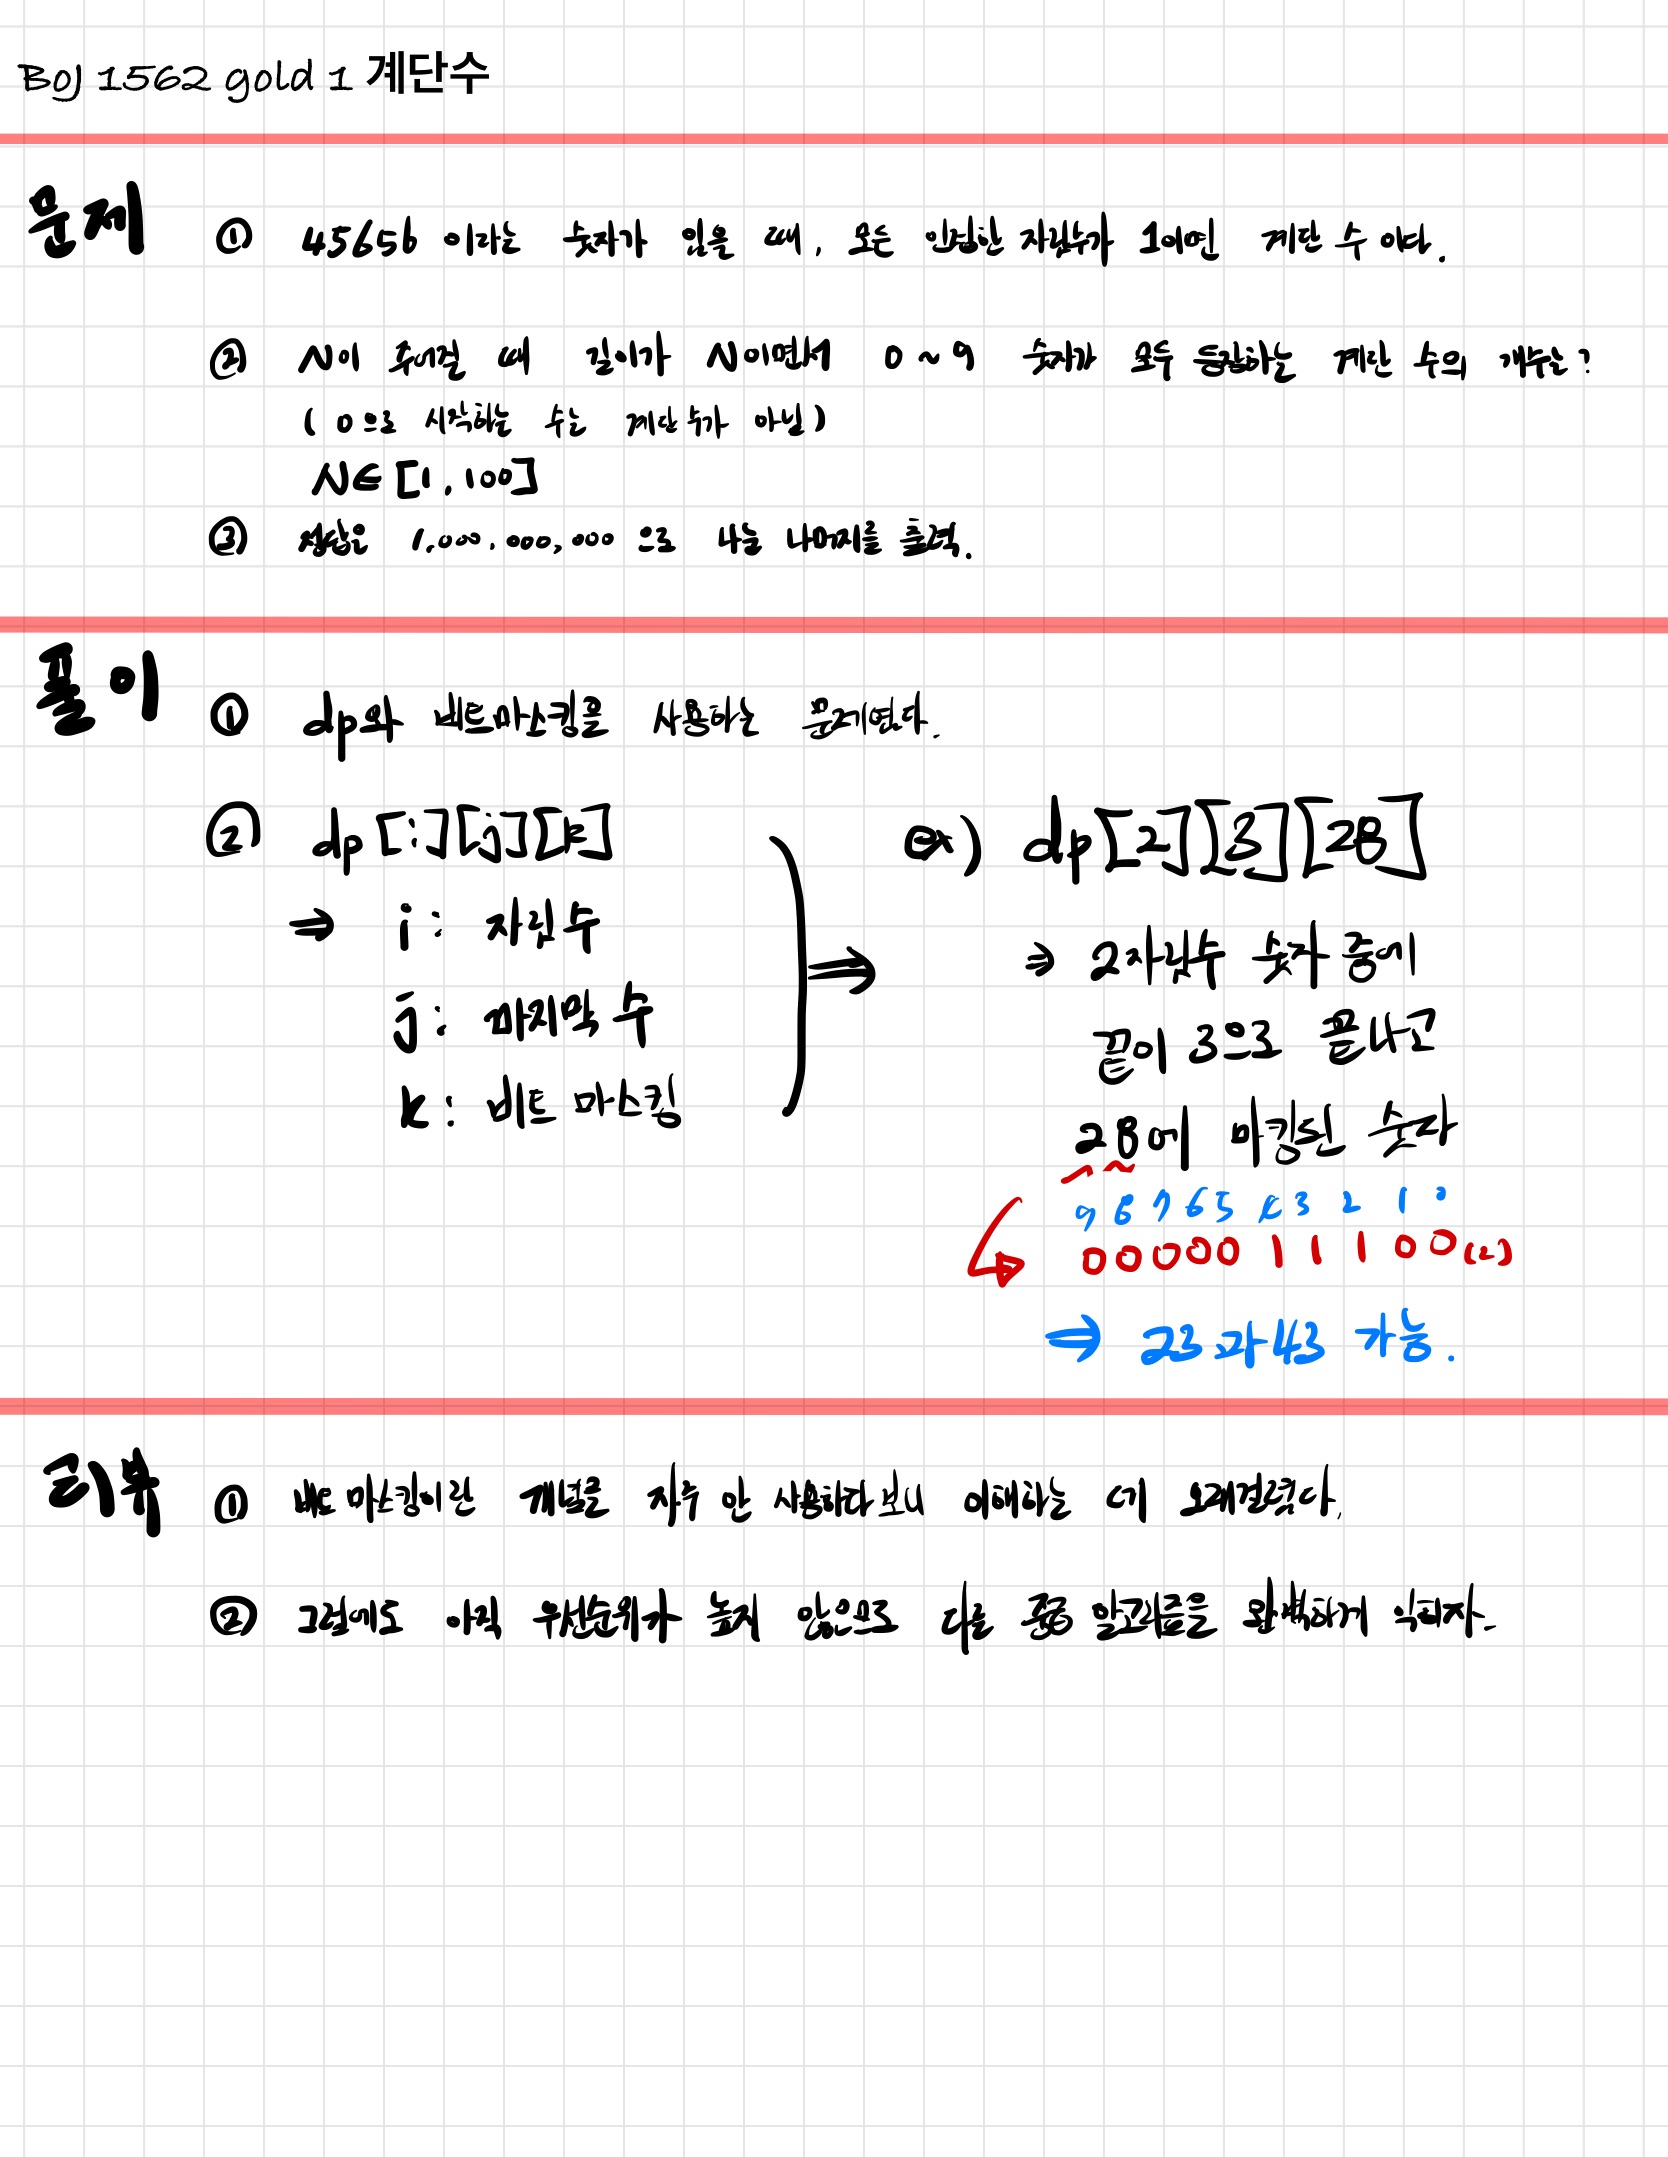 BOJ 1562 gold 1 계단수
문제
① 45656 이라는 숫자가 있을 때, 모든 인접한 자릿수가 1이면 계단 수 이다.
② N이 주어질 때 길이가 N이면서 0 ~ 9 숫자가 모두 등장하는 계단 수의 개수는?
( 0으로 시작하는 수는 계단수가 아님 )
N∈[1, 100]
③ 정답은 1,000,000,000 으로 나눈 나머지를 출력.
풀이
① dp와 비트마스킹을 사용하는 문제였다.
② dp[i][j][k]
⇒ i: 자릿수
j: 마지막 수
k: 비트 마스킹
⇒
ex) dp[2][3][28]
⇒ 2자릿수 숫자 중에
끝이 3으로 끝나고
28에 마킹된 숫자
9 8 7 6 5 4 3 2 1 0
0 0 0 0 0 1 1 1 0 0 (2)
⇒ 23과 43 가능.
리뷰
① 비트 마스킹이란 개념을 자주 안 사용하다 보니 이해하는 데 오래걸렸다.
② 그럼에도 아직 우선순위가 높지 않으므로 다른 중급 알고리즘을 완벽하게 익히자.